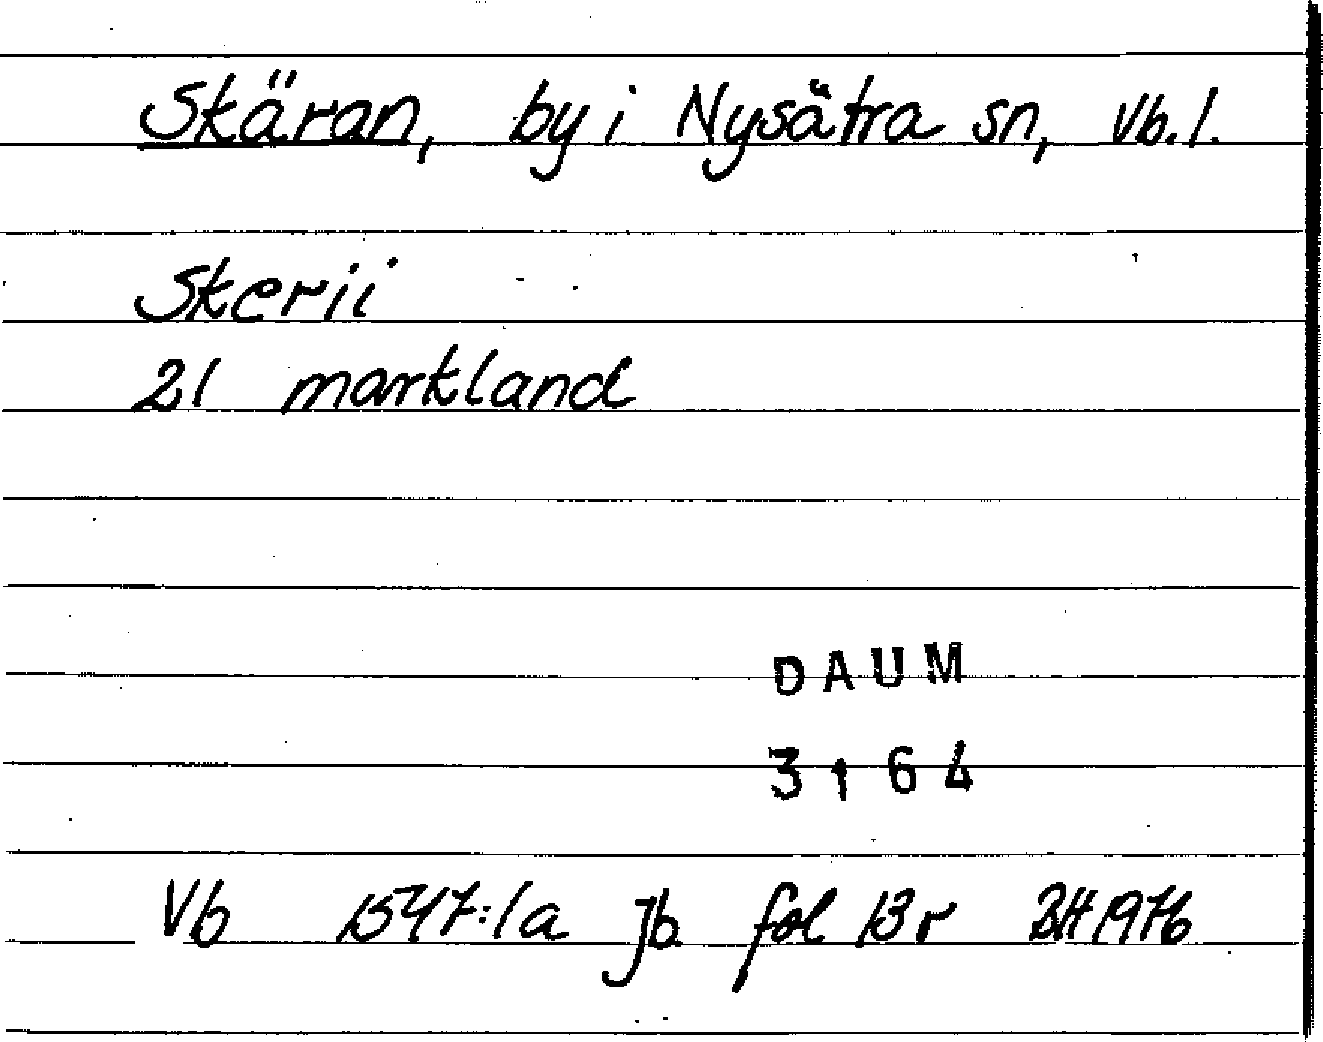 Skäran, by i Nysätra sn, Vb. l.
Skerii
21 markland
DAUM
3164
Vb 1547:1a Jb fol 13r BH 1976